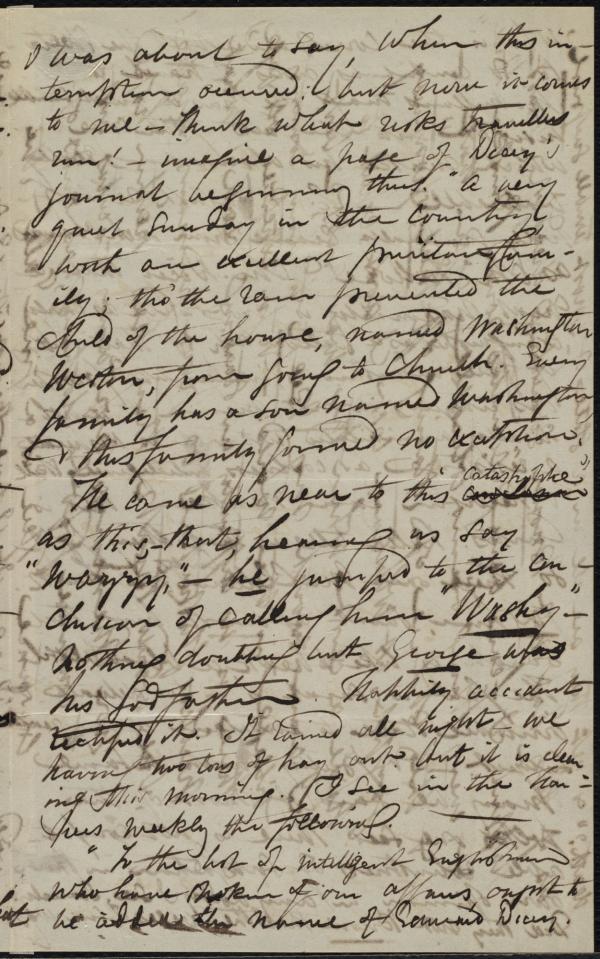 I was about to say, when this in-
terruption occurred. but now it comes
to me - think what risks travellers
run! - imagine a page of Dicey's
journal beginning thus. "A very
quiet Sunday in the country,
with an excellent puritan fam-
ily; tho' the rain prevented the
child of the house, named Washington
Weston, from going to church. Every
family has a son named Washington,
& this family formed no exception."
He came as near to this catastrophe
as this, - that, hearing us say
"Warry," - he jumped to the con-
clusion of calling him "Washy" -
nothing doubting but George was
his Godfather. Happily accident
it. It rained all night - we
having two tons of hay out. but it is clear-
ing this morning. I see in the Har-
pers weekly the following.
"To the list of intelligent Englishmen
who have spoken of our affairs ought to
be added the name of Edward Dicey.